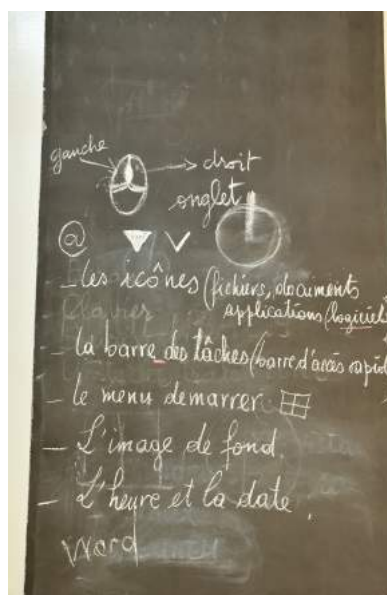 gauche
droit
onglet
@
- les icônes (fichiers, documents
applications (logiciel
- la barre des tâches (barre d'accès rapid
- le menu demarrer
- L'image de fond.
- L'heure et la date.
Word